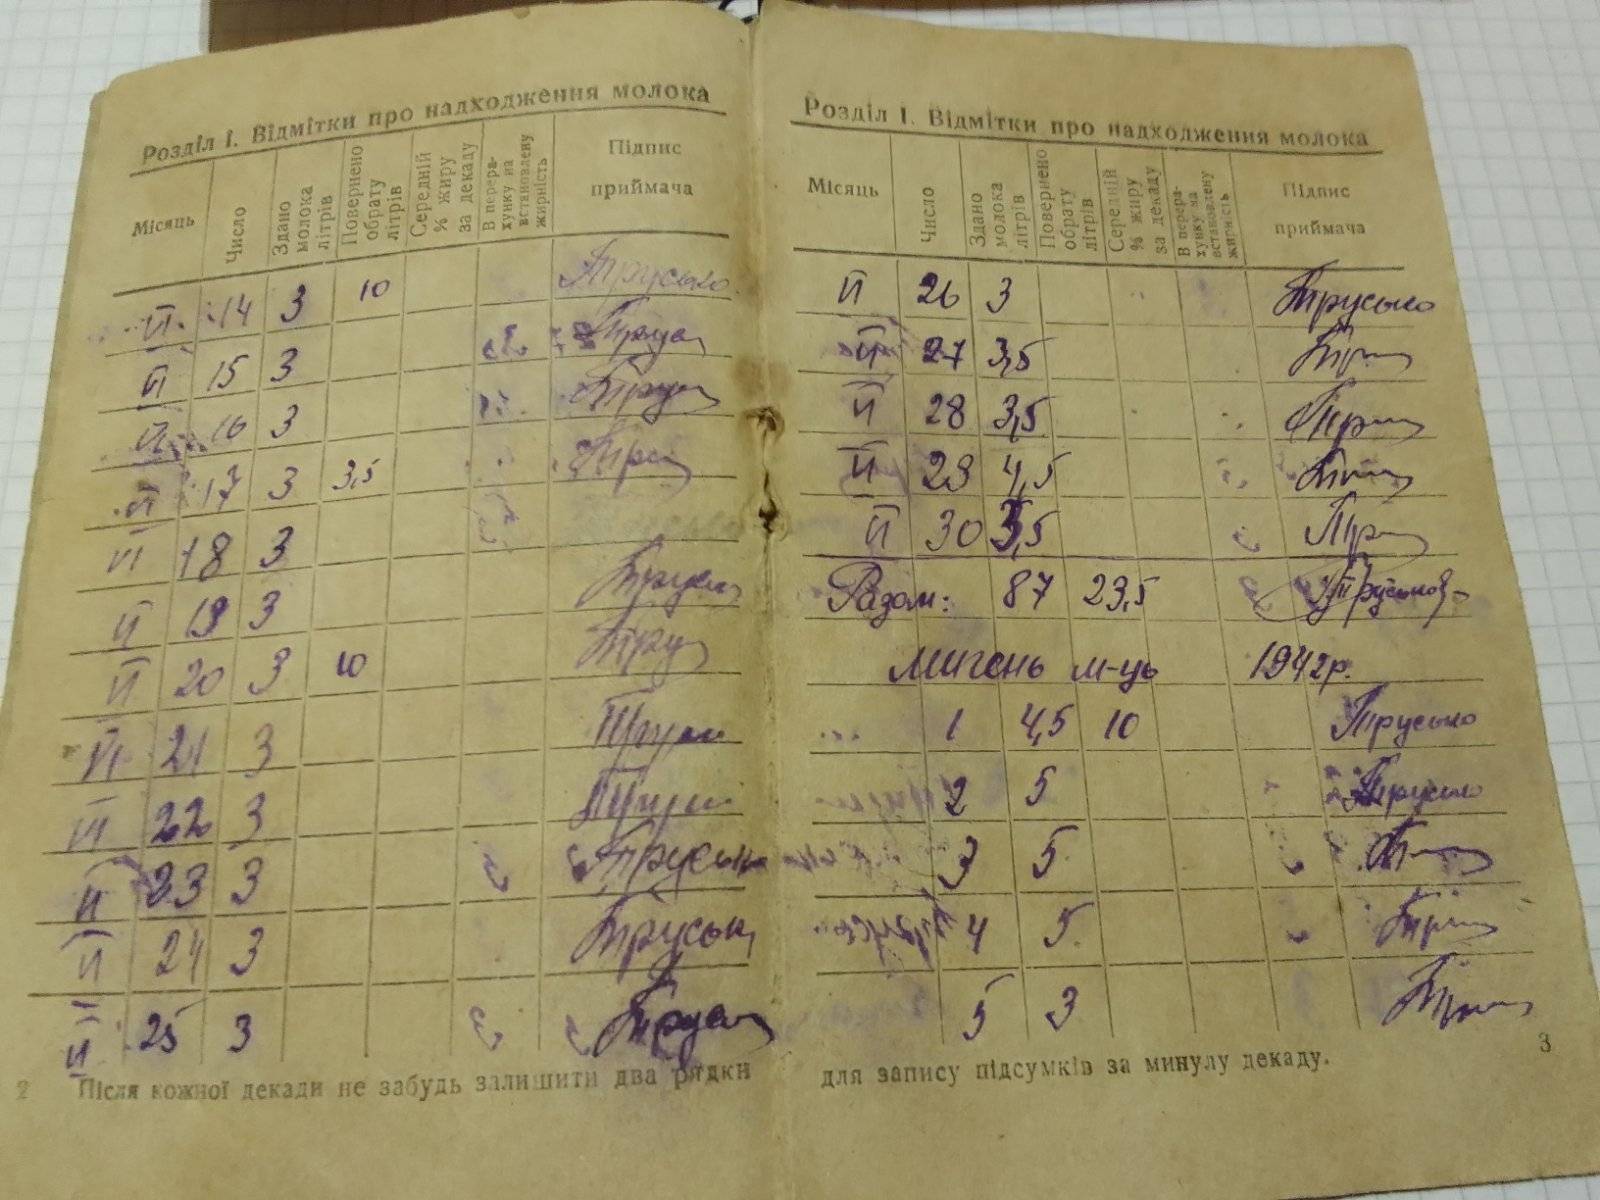 Розділ І. Відмітки про надходження молока
Місяць Число Здано молока літрів Повернено обрату літрів Середній % жиру за декаду В перера-хунку на встановлену жирність Підпис приймача
VI 14 3 10 Трусько
VI 15 3
VI 16 3
VI 17 3 3,5
VI 18 3
VI 19 3
VI 20 3 10
VI 21 3
VI 22 3
VI 23 3
VI 24 3
VI 25 3
2 Після кожної декади не забудь залишити два рядки
Розділ І. Відмітки про надходження молока
Місяць Число Здано молока літрів Повернено обрату літрів Середній % жиру за декаду В перера-хунку на встановлену жирність Підпис приймача
VI 26 3 Трусько
VI 27 3,5
VI 28 3,5
VI 29 4,5
VI 30 3,5
Разом: 87 23,5
м-ць 1942 р.
1 4,5 10 Трусько
2 5 Трусько
3 5
4 5
5 3
для запису підсумків за минулу декаду. 3